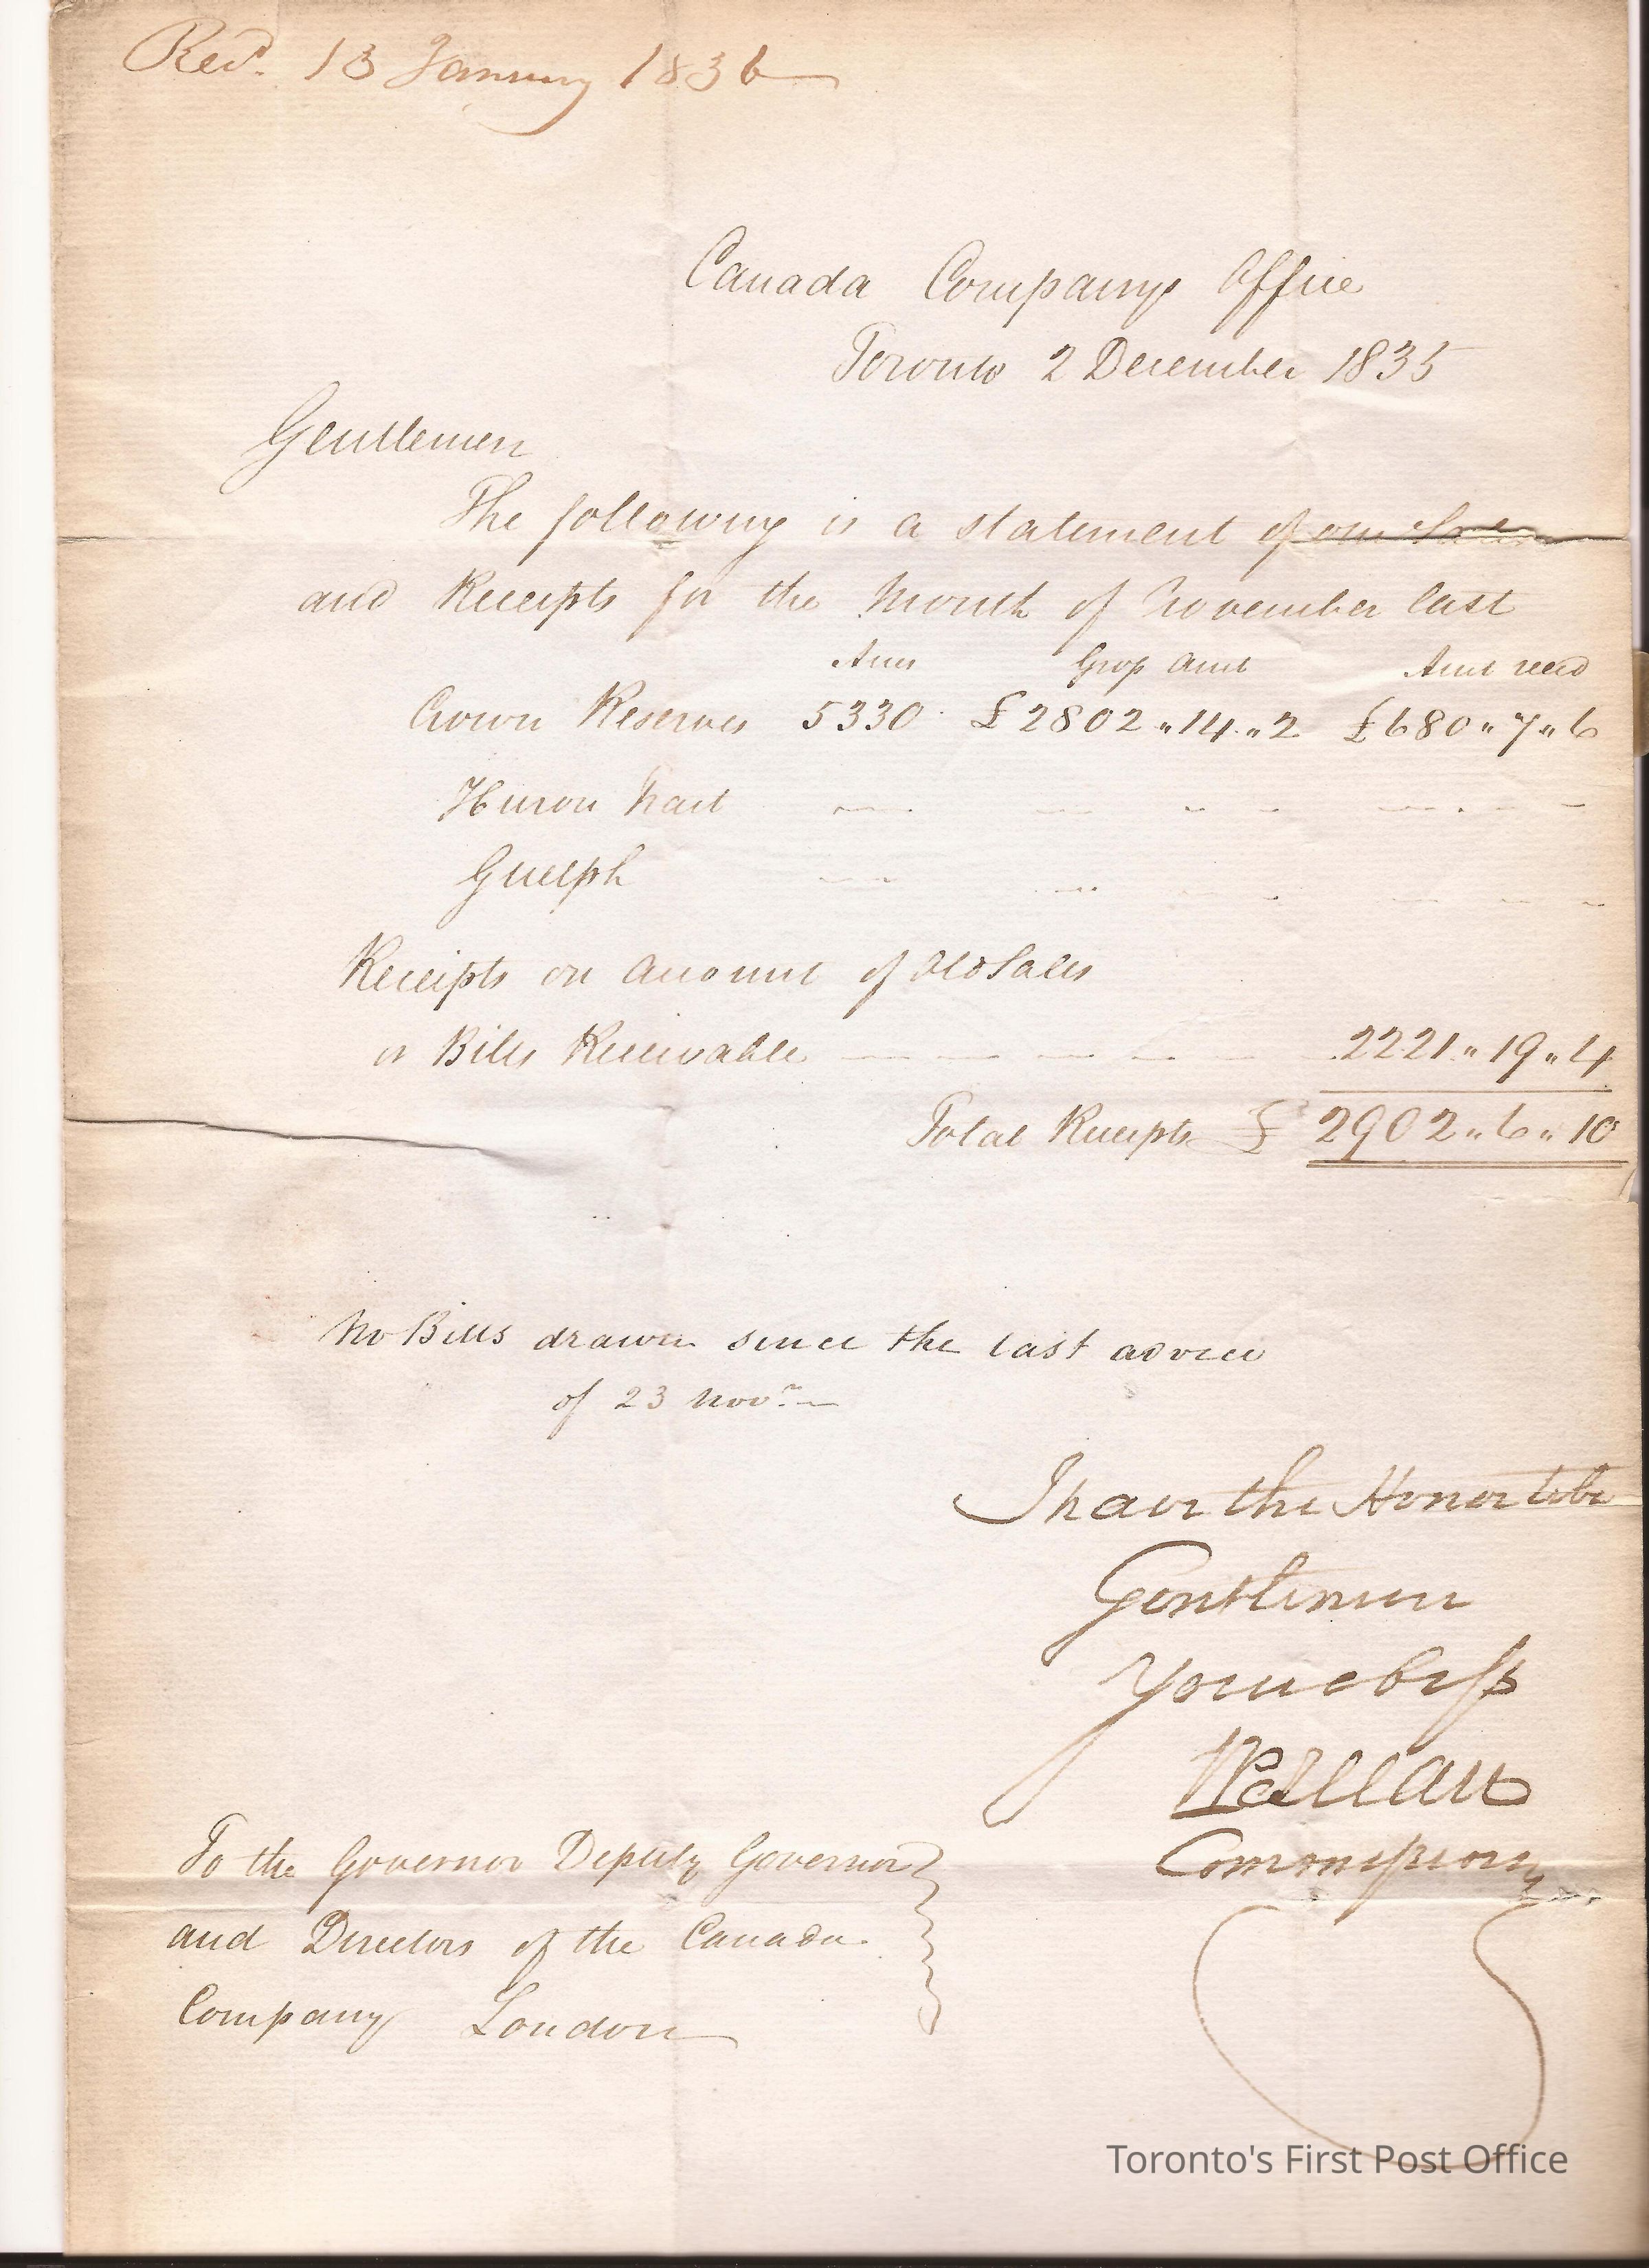 Recd. 13 January 1836
Canada Companys Office
Toronto 2 December 1835
Gentlemen
The following is a statement of our Sales
and Receipts for the Month of November last
Acres Gross Amt Amt recd
Crown Reserves 5330 £2802 " 14 " 2 £680 " 7 " 6
Huron Tract
Guelph
Receipts on account of Old Sales
or Bills Receivable 2221 " 19 " 4
Total Receipts £ 2902 " 6 " 10
No Bills drawn since the last advice
of 23 Novr.
I have the Honor to be
Gentlemen
Commissioner
To the Governor Deputy Governor
and Directors of the Canada
Company London
Toronto's First Post Office